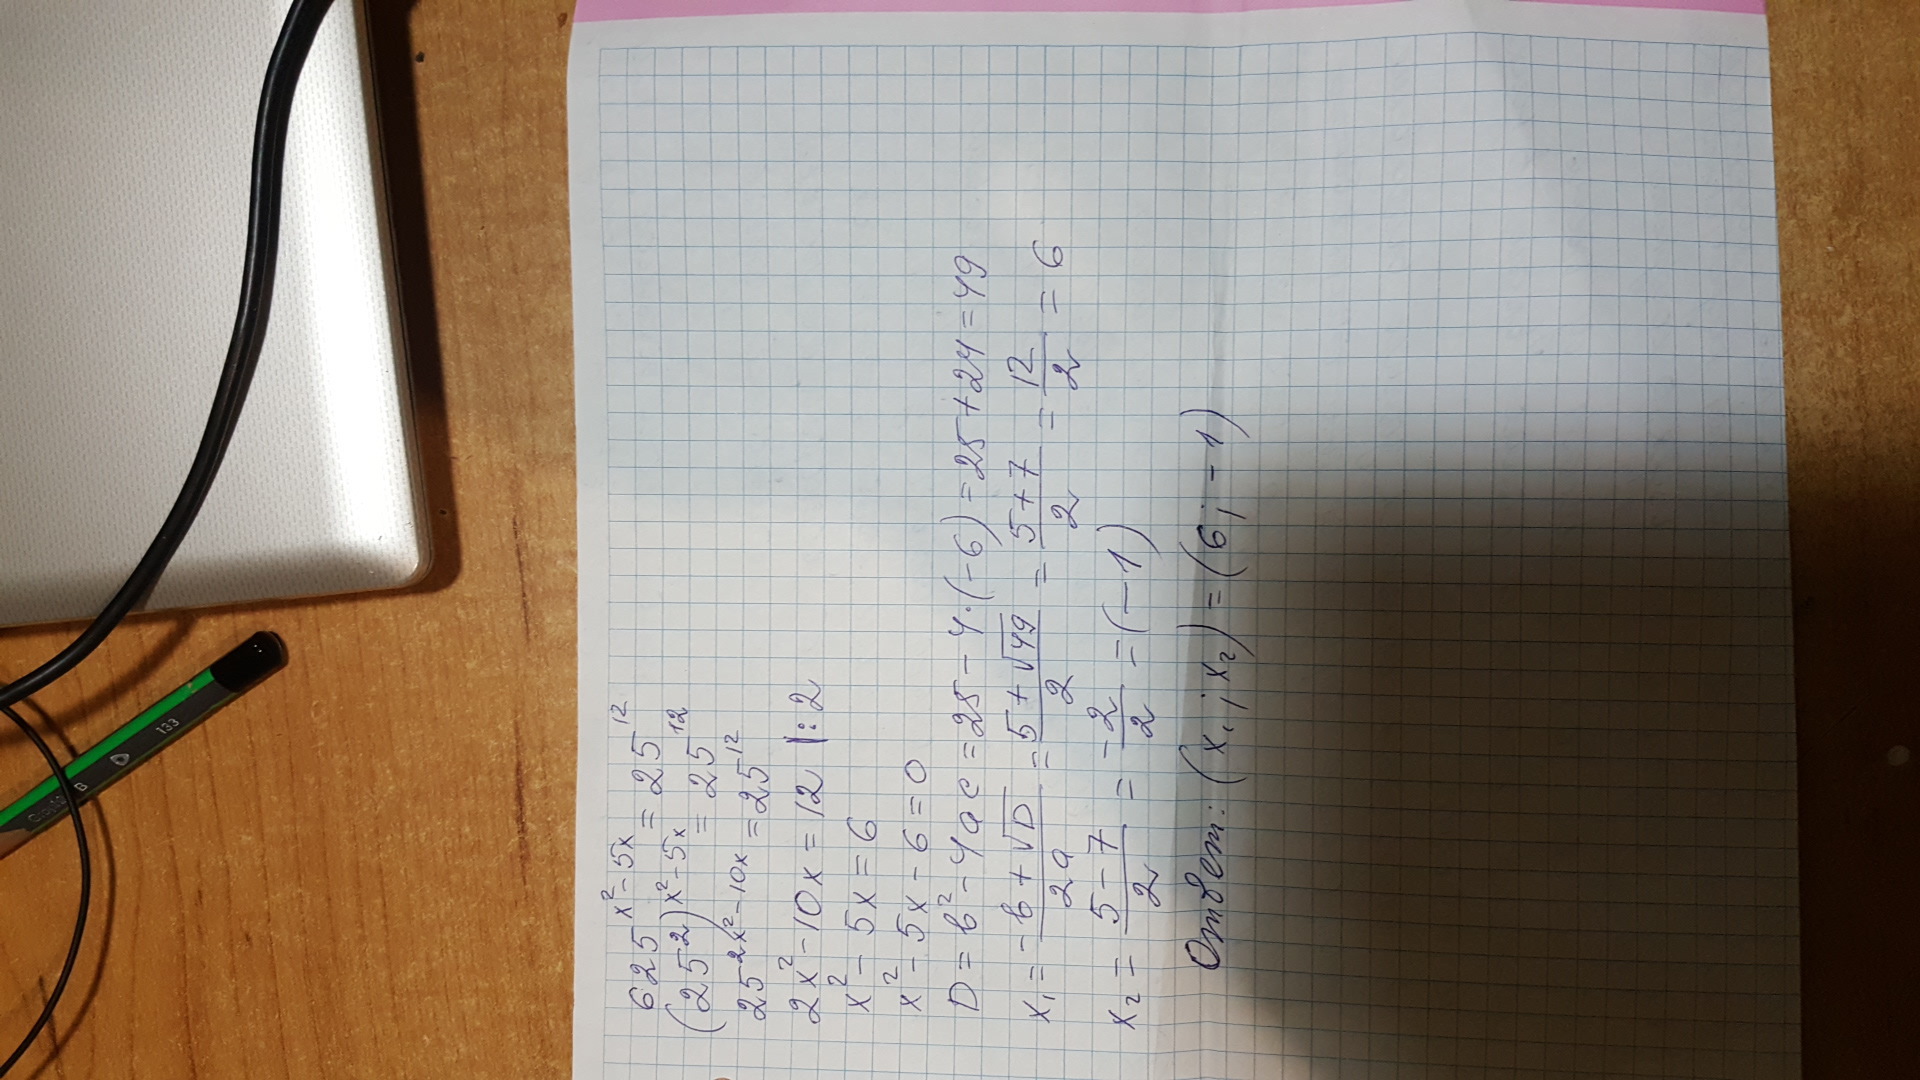 625^(x²-5x) = 25^12
(25²)^(x²-5x) = 25^12
25^(2x²-10x) = 25^12
2x² - 10x = 12 |:2
x² - 5x = 6
x² - 5x - 6 = 0
D = b² - 4ac = 25 - 4·(-6) = 25 + 24 = 49
x₁ = (-b + √D)/(2a) = (5 + √49)/2 = (5 + 7)/2 = 12/2 = 6
x₂ = (5 - 7)/2 = -2/2 = (-1)
Ответ: (x₁; x₂) = (6; -1)
B 133